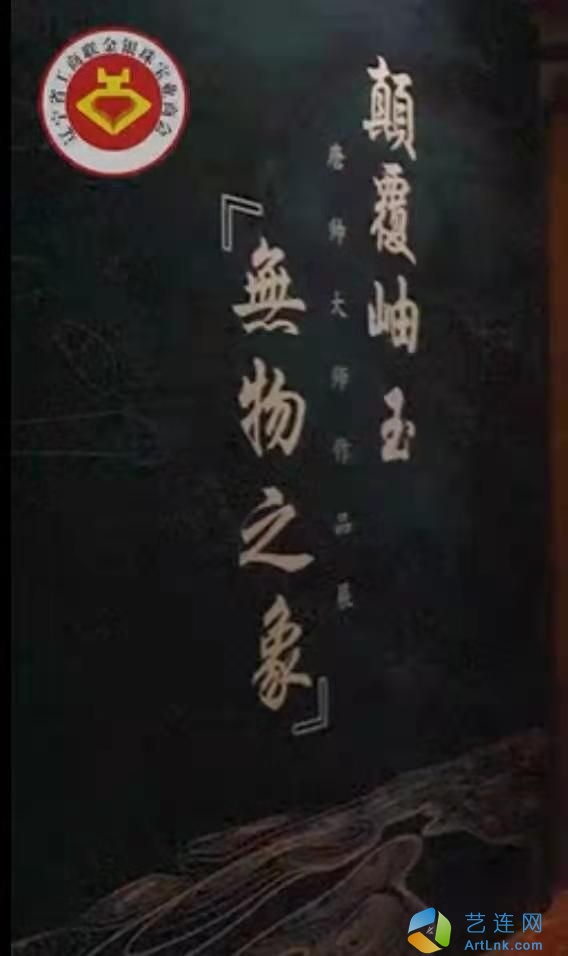 辽宁省工商联金银珠宝业商会
顛覆岫玉
唐帅大师作品展
『無物之象』
艺连网
ArtLnk.com